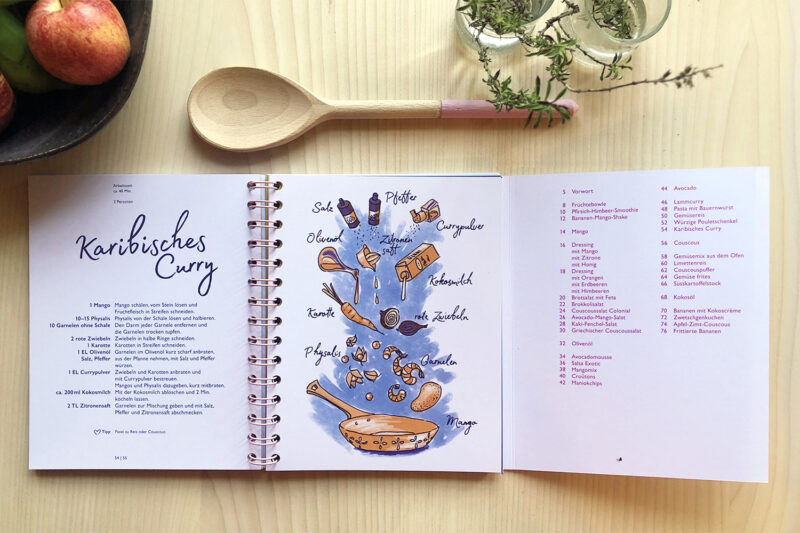 Arbeitszeit
ca. 45 Min.
2 Personen
Karibisches
Curry
1 Mango Mango schälen, vom Stein lösen und
Fruchtfleisch in Streifen schneiden.
10–15 Physalis Physalis von der Schale lösen und halbieren.
10 Garnelen ohne Schale Den Darm jeder Garnele entfernen und
die Garnelen trocken tupfen.
2 rote Zwiebeln Zwiebeln in halbe Ringe schneiden.
1 Karotte Karotten in Streifen schneiden.
1 EL Olivenöl Garnelen im Olivenöl kurz scharf anbraten,
Salz, Pfeffer aus der Pfanne nehmen, mit Salz und Pfeffer
würzen.
1 EL Currypulver Zwiebeln und Karotten anbraten und
mit Currypulver bestreuen.
Mangos und Physalis dazugeben, kurz mitbraten.
ca. 200ml Kokosmilch Mit der Kokosmilch ablöschen und 2 Min.
köcheln lassen.
2 TL Zitronensaft Garnelen zur Mischung geben und mit Salz,
Pfeffer und Zitronensaft abschmecken.
Tipp Passt zu Reis oder Couscous
54 | 55
Salz
Pfeffer
Currypulver
Olivenöl
Zitronen
saft
Kokosmilch
Karotte
rote Zwiebeln
Physalis
Garnelen
Mango
5 Vorwort
8 Früchtebowle
10 Pfirsich-Himbeer-Smoothie
12 Bananen-Mango-Shake
14 Mango
16 Dressing
mit Mango
mit Zitrone
mit Honig
18 Dressing
mit Orangen
mit Erdbeeren
mit Himbeeren
20 Brotsalat mit Feta
22 Brokkolisalat
24 Couscoussalat Colonial
26 Avocado-Mango-Salat
28 Kaki-Fenchel-Salat
30 Griechischer Couscoussalat
32 Olivenöl
34 Avocadomousse
36 Salsa Exotic
38 Mangomix
40 Croûtons
42 Maniokchips
44 Avocado
46 Lammcurry
48 Pasta mit Bauernwurst
50 Gemüsereis
52 Würzige Pouletschenkel
54 Karibisches Curry
56 Couscous
58 Gemüsemix aus dem Ofen
60 Limettenreis
62 Couscouspuffer
64 Gemüse frites
66 Süsskartoffelstock
68 Kokosöl
70 Bananen mit Kokoscrème
72 Zwetschgenkuchen
74 Apfel-Zimt-Couscous
76 Frittierte Bananen